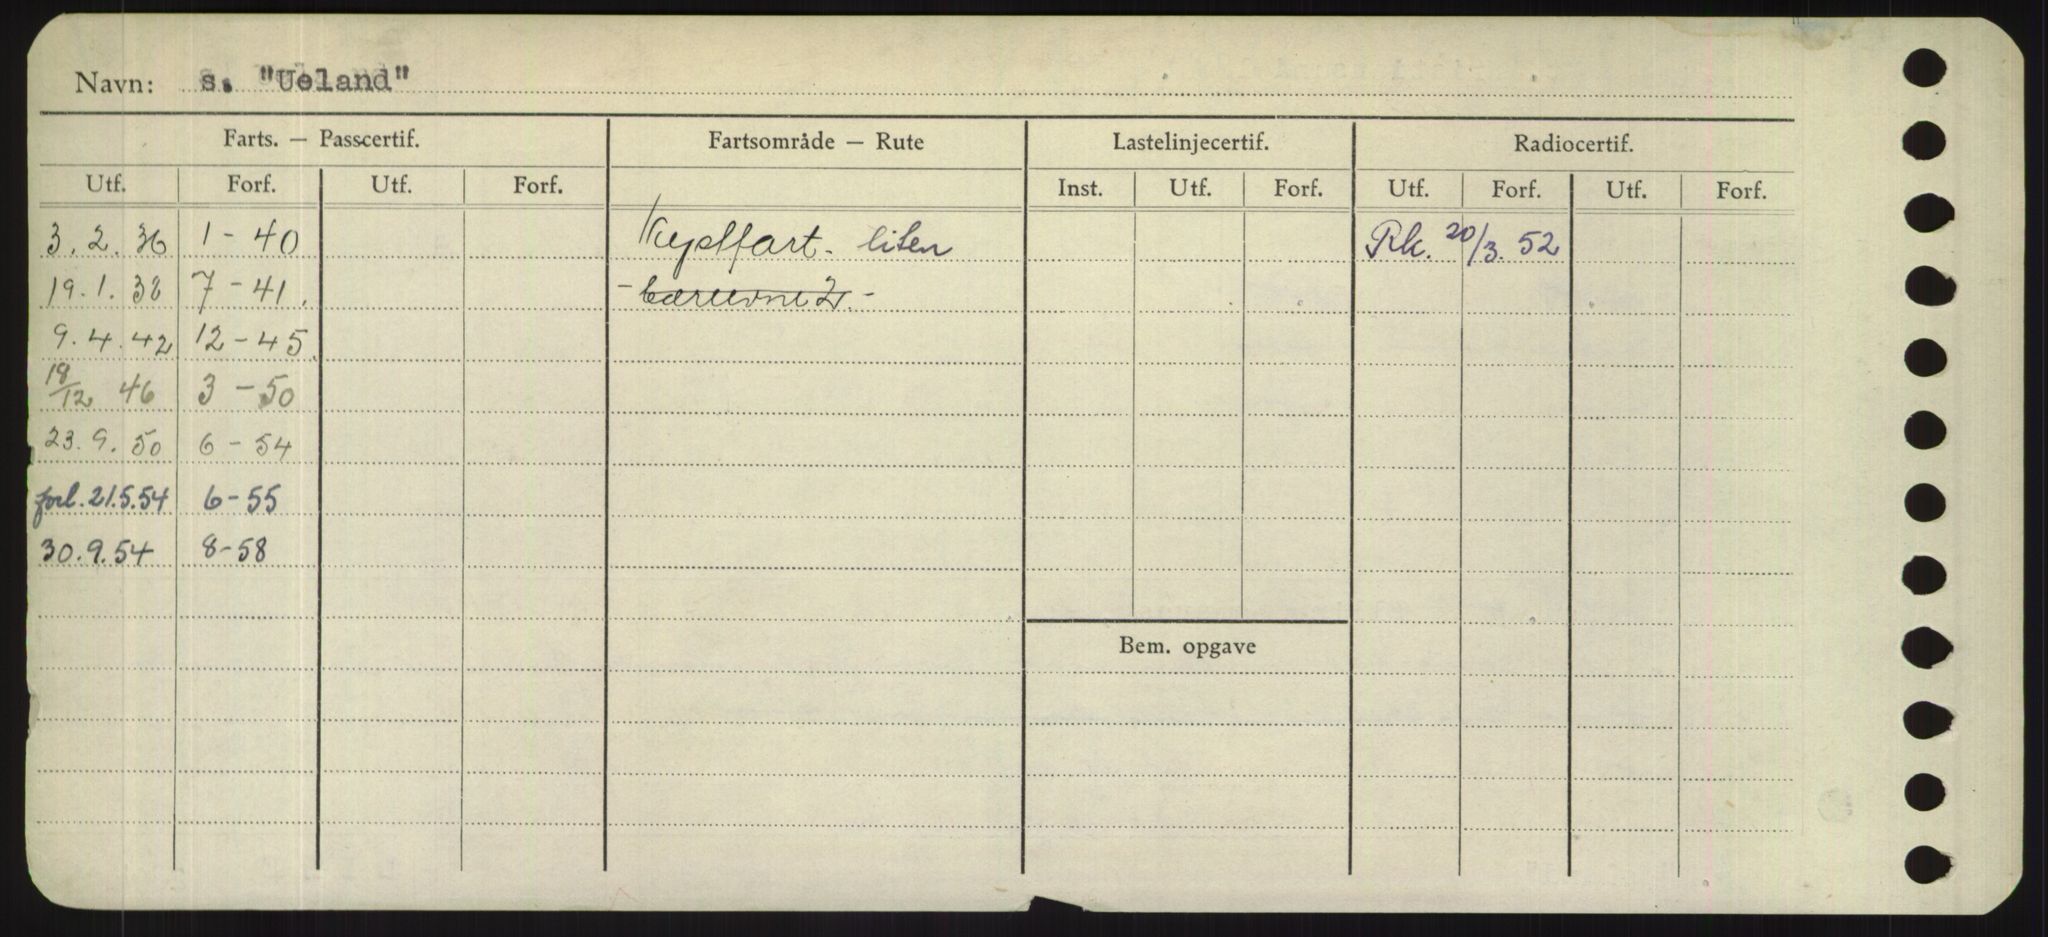 Navn: s. "Ueland"
Farts. — Passcertif. Fartsområde — Rute Lastelinjecertif. Radiocertif.
Utf. Forf. Utf. Forf. Inst. Utf. Forf. Utf. Forf. Utf. Forf.
3.2.36 1-40 Kystfart. liten Rk. 20/3.52
19.1.38 7-41. - bæreevne 2. -
9.4.42 12-45.
18/12 46 3-50
23.9.50 6-54
forl. 21.5.54 6-55
30.9.54 8-58
Bem. opgave